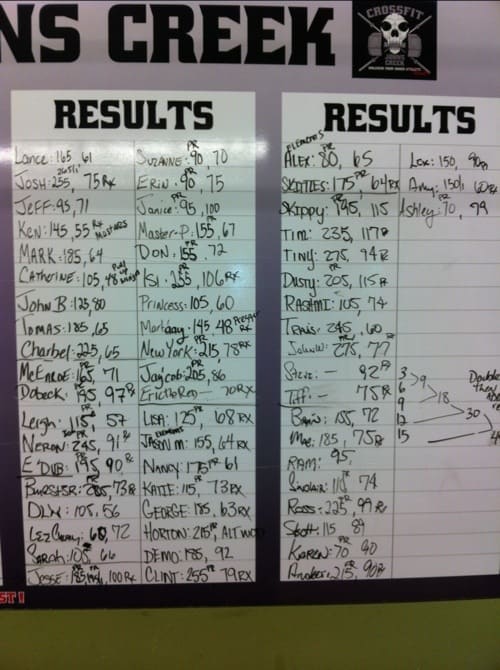 NS CREEK
CROSSFIT
JOHNS CREEK
RESULTS
Lance: 165, 61
Josh: 255, 75 Rx
Jeff: 95, 71
Ken: 145, 55 Rx
MARK: 185, 64
Catherine: 105, 48
John B: 125, 80
Tomas: 185, 65
Charbel: 225, 65
McEnroe: 165, 71
Dobeck: 195, 97 R
Leigh: 115, 57
Neron: 245, 91 R
E'Dub: 195, 90 R
73 R
DLW: 105, 56
72
Sarah: 105, 66
Jesse: 185 100 Rx
SUZANNE: 90, 70
PR
Erin: 90, 75
PR
Janice: 95, 100
PR
Master-P: 155, 67
PR
Don: 155, 72
PR
255, 106 Rx
Princess: 105, 60
Monday: 145, 48
New York: 215, 78 Rx
Jaycob: 205, 86
Erich Red — 70 Rx
LISA: 125, 68 Rx
PR
JASON M: 155, 64 Rx
NANCY: 175 PR 61
KATIE: 115, 73 Rx
GEORGE: 185, 63 Rx
HORTON: 215 PR, ALT WOD
DEMO: 185, 92
CLINT: 255 PR 79 Rx
RESULTS
ALEX: 80, 65
PR
SKITTLES: 175, 64 Rx
PR
Skippy: 195, 115
Tim: 235, 117 R
Tiny: 275, 94 R
Dusty: 205, 115 R
RASHMI: 105, 74
Travis: 245, 60
John W: 275, 77
Steve: — 82
Tiffi — 75 R
155, 72
Moe: 185, 75 R
RAM: 95,
Sinclair: 115 74
Ross: 225, 99 R
Scott: 115 89
Karen: 70 90
215, 90 R
Lex: 150,
Amy: 150, 60 Rx
Ashley: 70, 99
3 > 9
6
9 > 18
12 > 30
15
ST!